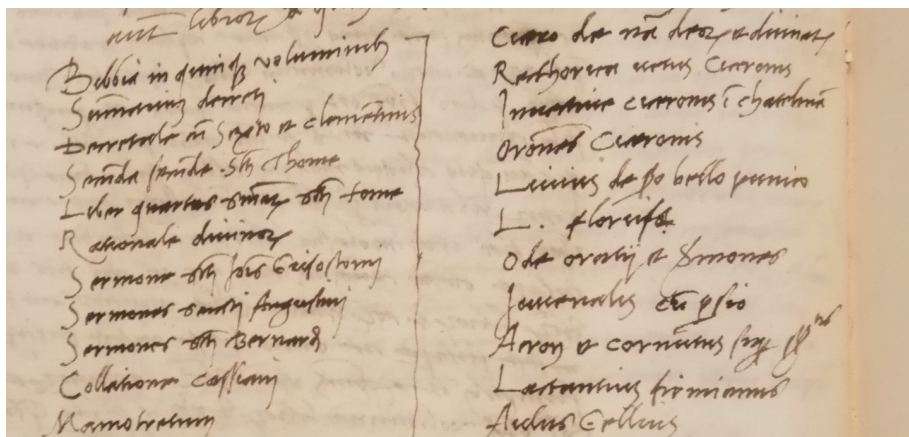 Bibbia in quinq; voluminib;
Summarium decreti
Decretale cũ Sexto et clementinis
Secũda secũde Sti Thome
Liber quartus snĩaꝝ sti tome
Rationale divinoꝝ
Sermone sti Joĩs Grisostomi
Sermones sancti Augustini
Sermones sti Bernardi
Collatione cassiani
Mamotretum
Cicero de nã deoꝝ et divinat
Rethorica vetus Ciceronis
Invective ciceronis ĩ chatelinã
Orõnes Ciceronis
Livius de po bello punico
L. florus
Ode oratij et Smones
Jovenalis cũ psio
Acron et cornutus sup
Lactantius firmianus
Aulus Gellius